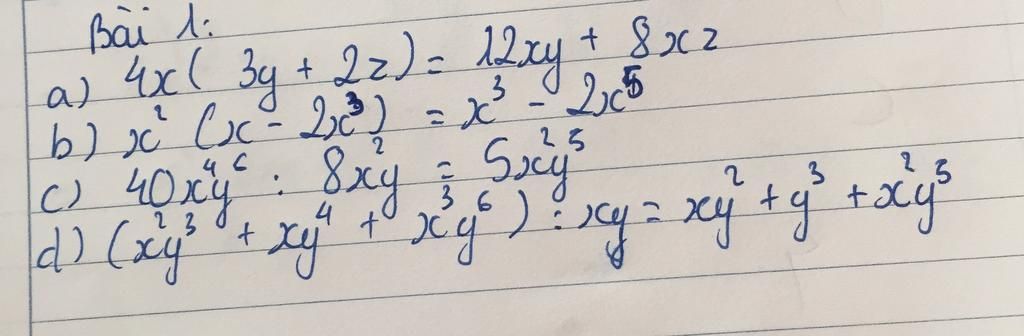 Bài 1:
a) 4x( 3y + 2z) = 12xy + 8xz
b) x² (x - 2x³) = x³ - 2x⁵
c) 40x⁴y⁶ : 8x²y = 5x²y⁵
d) (x²y³ + xy⁴ + x³y⁶) : xy = xy² + y³ + x²y⁵